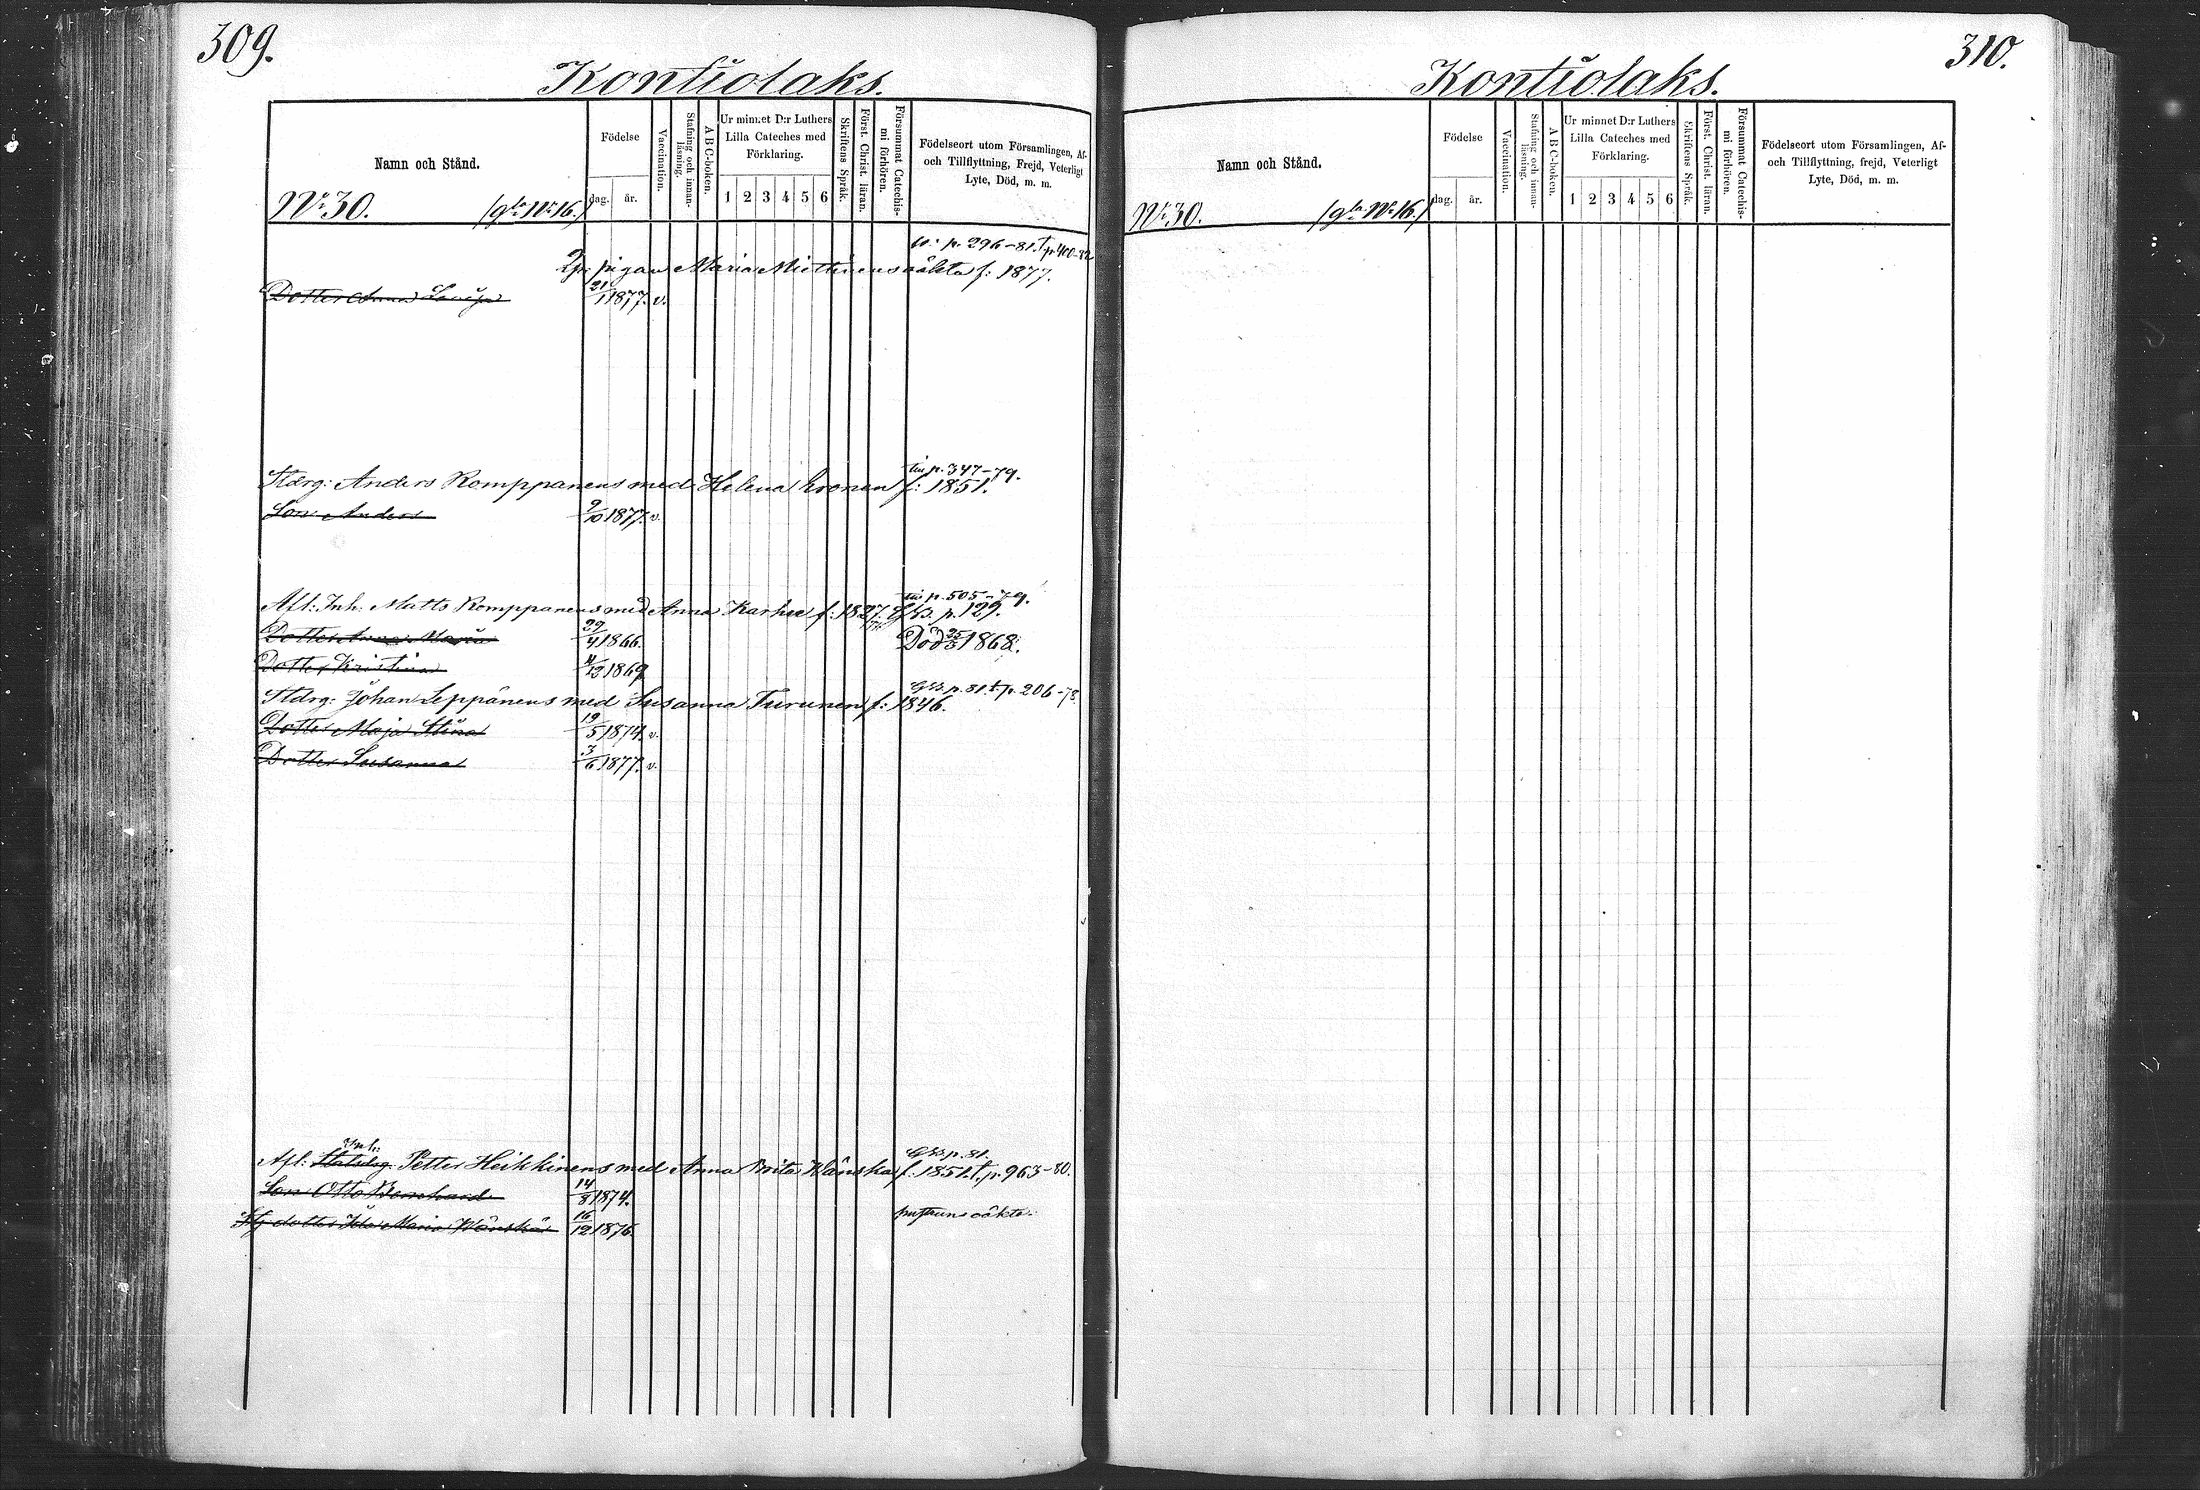 309.
Kontiolaks.
Namn och Stånd.
Födelse
dag. år.
Vaccination.
Stafning och innan-läsning.
A B C-boken.
Ur minnet D:r Luthers Lilla Cateches med Förklaring.
1 2 3 4 5 6
Skriftens Språk.
Först. Christ. läran.
Försummat Catechis-mi förhören.
Födelseort utom Församlingen, Af- och Tillflyttning, Frejd, Veterligt Lyte, Död, m. m.
Nº 30. (gla Nº 16.)
p. 296-81. t. p. 400-82
pigan Maria Miettinens oäkta f: 1877.
Dotter Anna 21/1 1877. v.
p. 347-79.
Anders Romppanens med Helena Eronen f: 1851.
Son Anders 9/10 1877. v.
p. 505-79.
Afl: Inh: Matts Romppanens med Anna Karhu f: 1827. p. 129.
Dotter Anna Maria 29/4 1866. Död 25/5 1868.
Dotter Kristina 4/12 1869
p. 81. t. p. 206-78
Johan Leppänens med Susanna Turunen f: 1846.
Dotter Maja Stina 19/5 1874. v.
Dotter Susanna 3/6 1877. v.
Inh: p. 81.
Afl: Petter Heikkinens med Anna Brita Wänskä f. 1851. t. p. 963-80.
Son Otto Bernhard 14/8 1874.
dotter Ida Maria Wänskä 16/12 1876. oäkta.
310.
Kontiolaks.
Namn och Stånd.
Födelse
dag. år.
Vaccination.
Stafning och innan-läsning.
A B C-boken.
Ur minnet D:r Luthers Lilla Cateches med Förklaring.
1 2 3 4 5 6
Skriftens Språk.
Först. Christ. läran.
Försummat Catechis-mi förhören.
Födelseort utom Församlingen, Af- och Tillflyttning, frejd, Veterligt Lyte, Död, m. m.
Nº 30. (gla Nº 16.)